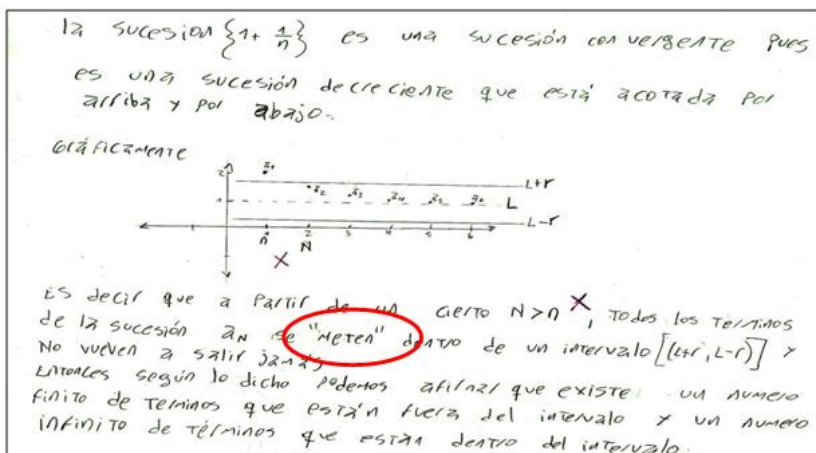 la sucesión {1+ 1/n} es una sucesión convergente pues
es una sucesión decreciente que está acotada por
arriba y por abajo.
Gráficamente
2
a1
L+r
a2 a3 a4 a5 a6
1
L
L-r
n 2 3 4 5 6
N
X
Es decir que a partir de un cierto N>n X, todos los términos
de la sucesión aN se "meten" dentro de un intervalo [(L+r, L-r)] y
No vuelven a salir jamás
Entonces según lo dicho podemos afirmar que existe un numero
finito de terminos que están fuera del intervalo y un numero
infinito de términos que están dentro del intervalo.